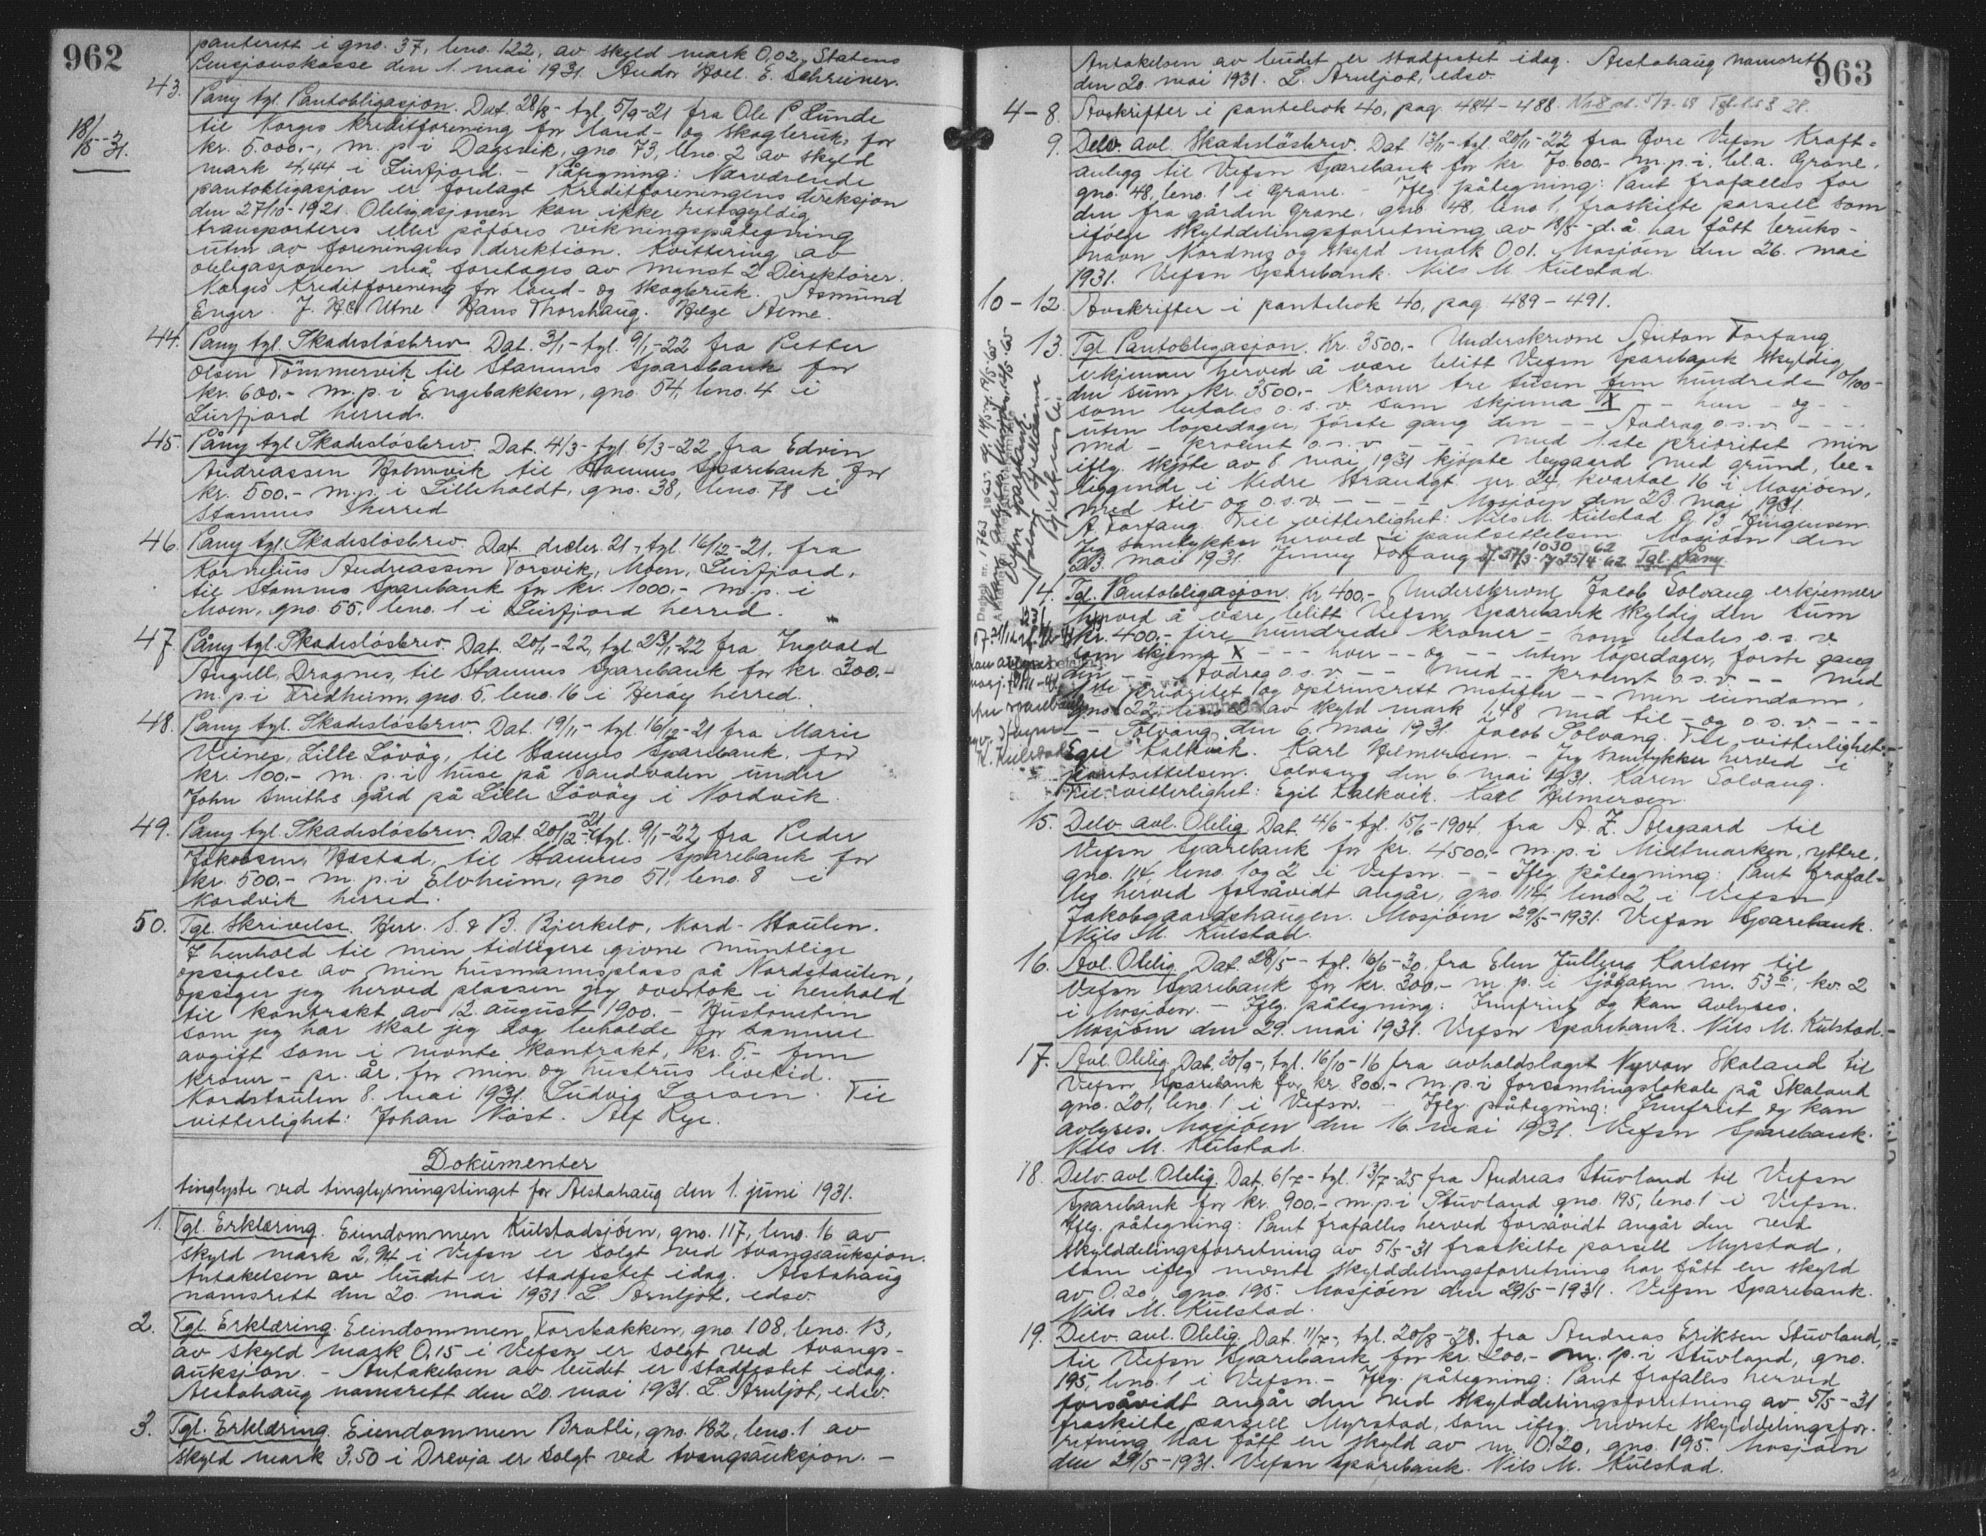 962
panterett i gno. 37, bno. 122, av skyld mark 0,02. Statens
Pensjonskasse den 1. mai 1931. Andor Hoel. E. Schreiner.
43. Påny tgl. Pantobligasjon. Dat. 28/8 - tgl. 5/9-21 fra Ole P. Lunde
18/5-31.
til Norges kreditforening for land- og skogbruk, for
kr. 5.000,-, m. p. i Dagsvik, gno. 73, bno. 2 av skyld
mark 4,44 i Leirfjord. - Påtegning: Nærværende
pantobligasjon er forelagt kreditforeningens direksjon
den 27/10-1921. Obligasjonen kan ikke rettsgyldig
transporteres eller påføres vikningspåtegning
uten av foreningens direktion. Kvittering av
obligasjonen må foretages av minst 2 Direktører.
Norges Kreditforening for land- og skogbruk. Asmund
Enger. J. HC Utne. Hans Thorshaug. Helge Alme.
44. Påny tgl. Skadesløsbrev. Dat. 3/1 - tgl. 9/1-22 fra Petter
Olsen Tømmervik til Stamnes Sparebank for
kr. 600.- m. p. i Engebakken, gno. 54, bno. 4 i
Leirfjord herred.
45. Påny tgl. Skadesløsbrev. Dat. 4/3 - tgl. 6/3-22 fra Edvin
Andreassen Holmvik til Stamnes Sparebank for
kr. 500.- m. p. i Lilleholdt, gno. 38, bno. 78 i
Stamnes herred
46. Påny tgl. Skadesløsbrev. Dat. decbr. 21 - tgl. 16/12-21, fra
Kornelius Andreassen Forsvik, Moen, Leirfjord,
til Stamnes Sparebank for kr. 1000.- m. p. i
Moen, gno. 55, bno. 1 i Leirfjord herred.
47. Påny tgl. Skadesløsbrev. Dat. 20/1-22, tgl. 23/1-22 fra Ingvald
Angell, Dragnes, til Stamnes Sparebank for kr. 300.-
m. p. i Fredheim, gno. 5, bno. 16 i Herøy herred.
48. Påny tgl. Skadesløsbrev. Dat. 19/11 - tgl. 16/12-21 fra Marie
Veines, Lille Løvøy, til Stamnes Sparebank, for
kr. 100.- m. p. i huse på Sandvalen under
John Smiths gård på Lille Løvøy i Nordvik.
49. Påny tgl. Skadesløsbrev. Dat. 20/12-21 - tgl. 9/1-22 fra Peder
Jakobsen, Hæstad, til Stamnes Sparebank for
kr. 500.- m. p. i Elvheim, gno 51, bno. 8 i
Nordvik herred.
50. Tgl. Skrivelse. Herr. S. & B. Bjerkelo, Nord-Staulen.
I henhold til min tidligere givne muntlige
opsigelse av min husmannsplass på Nordstaulen,
opsiger jeg herved plassen jeg overtok i henhold
til kontrakt av 12. august 1900. - Hustomten
som jeg har skal jeg dog beholde for samme
avgift som i nevnte kontrakt, kr. 5.- fem
kroner - pr. år, for min og hustrus livetid.
Nordstaulen 8. mai 1931. Ludvig Larsen. Til
vitterlighet: Johan Nøst. Alf Rye.
Dokumenter
tinglyste ved tinglysningstinget for Alstahaug den 1. juni 1931.
1. Tgl. Erklæring. Eiendommen Kulstadsjøen, gno. 117, bno. 16 av
skyld mark 2,94 i Vefsn er solgt ved tvangsauksjon.
Antakelsen av budet er stadfestet idag. Alstahaug
namsrett den 20. mai 1931. L. Arnljot, edsv.
2. Tgl. Erklæring. Eiendommen Forsbakken, gno. 108, bno. 13,
av skyld mark 0,15 i Vefsn er solgt ved tvangs-
auksjon. - Antakelsen av budet er stadfestet idag.
Alstahaug namsrett den 20. mai 1931. L. Arnljot, edsv.
3. Tgl. Erklæring. Eiendommen Bratli, gno. 132, bno. 1 av
skyld mark 3,50 i Drevja er solgt ved tvangsauksjon. -
963
Antakelsen av budet er stadfestet idag. Alstahaug namsrett
den 20. mai 1931. L. Arnljot, edsv.
4-8. Avskrifter i pantebok 40, pag. 484-488.
9. Delv. avl. Skadesløsbrev. Dat. 13/11 - tgl. 20/11-22 fra Øvre Vefsn Kraft-
anlegg til Vefsn Sparebank for kr. 70.600,- m. p. i bl. a. Grane,
gno. 48, bno. 1 i Grane. - Iflg. påtegning: Pant frafalles for
den fra gården Grane, gno. 48, bno. 1, fraskilte parsell som
ifølge skylddelingsforretning av 18/5 - d. å. har fått bruks-
navn Nordnes og skyld mark 0,01. Mosjøen den 26. mai
1931. Vefsn Sparebank. Nils M. Kulstad.
10-12. Avskrifter i pantebok 40, pag 489-491.
13. Tgl. Pantobligasjon. Kr. 3500.- Underskrevne Anton Forfang
erkjenner herved å være blitt Vefsn Sparebank skyldig
den sum kr. 3500.- kroner tre tusen fem hundrede 0/100 -
som betales o. s. v. som skjema X - - hver - og - -
uten løpedager, første gang den - - Avdrag o. s. v. - - -
med - procent o. s. v. - - - med 1ste prioritet min
iflg. skjøte av 8. mai 1931 kjøpte bygaard med grund, be-
liggende i Nedre Strandgt. nr. 24, kvartal 16 i Mosjøen,
med til- og o. s. v. - - - - Mosjøen den 23. mai 1931.
A. Forfang. Til vitterlighet: Nils M. Kulstad. G. B. Jürgensen.
Jeg samtykker herved i pantsettelsen. Mosjøen den
23. mai 1931. Jenny Forfang. Tgl. Påny
14. Tgl. Pantobligasjon. Kr. 400,- Underskrevne Jacob Solvang erkjenner
herved å være blitt Vefsn Sparebank skyldig den sum
kr. 400,- fire hundrede kroner - som betales o. s. v.
som skjema X - - - hver - - og - - uten løpedager, første gang
den - - Avdrag o. s. v. - - med - - procent o. s. v. - - med
1ste prioritet og optrinsrett nestefter - - min eiendom,
gno. 22, bno. 2 av skyld mark 1,48 med til - og o. s. v. - - -
- - Solvang den 6. mai 1931. Jacob Solvang. Til vitterlighet:
Egil Kalkvik. Karl Hilmersen. - Jeg samtykker herved i
pantsettelsen. Solvang den 6. mai 1931. Karen Solvang.
Til vitterlighet: Egil Kalkvik. Karl Hilmersen.
15. Delv. avl. Oblig. Dat. 4/6 - tgl. 15/6-1904, fra A. Z. Alsgaard til
Vefsn Sparebank for kr. 4500,- m. p. i Midtmarken, yttre,
gno. 114, bno. 1 og 2 i Vefsn. - - Iflg. påtegning: Pant frafal-
les herved forsåvidt angår, gno. 114, bno. 2 i Vefsn,
Jakobgaardshaugen. Mosjøen 29/5-1931. Vefsn Sparebank.
Nils M. Kulstad.
16. Avl. Oblig. Dat. 28/5 - tgl. 16/6-30, fra Elen Jullena Karlsen til
Vefsn Sparebank for kr. 300.- m. p. i Sjøgaten nr. 53 b, kv. 2
i Mosjøen. - Iflg. påtegning: Innfriet og kan avlyses.
Mosjøen den 29. mai 1931. Vefsn Sparebank. Nils M. Kulstad.
17. Avl. Oblig. Dat. 30/9 -, tgl. 16/10-16 fra avholdslaget Nyvon Skaland til
Vefsn Sparebank for kr. 800.- m. p. i forsamlingslokale på Skaland
gno. 201, bno. 1 i Vefsn. - Iflg. påtegning: Innfriet og kan
avlyses. Mosjøen den 16. mai 1931. Vefsn Sparebank.
Nils M. Kulstad.
18. Delv. avl. Oblig. Dat. 6/7 - tgl. 13/7-25 fra Andreas Stuvland til Vefsn
Sparebank for kr. 900.- m. p. i Stuvland gno. 195, bno. 1 i Vefsn.
Iflg. påtegning: Pant frafalles herved forsåvidt angår den ved
skylddelingsforretning av 5/5-31 fraskilte parsell Myrstad,
som iflg. nevnte skylddelingsforretning har fått en skyld
av 0,20, gno. 195. Mosjøen den 29/5-1931. Vefsn Sparebank.
Nils M. Kulstad.
19. Delv. avl. Oblig. Dat. 11/7 -, tgl. 20/8-28, fra Andreas Eriksen Stuvland,
til Vefsn Sparebank for kr. 200.- m. p. i Stuvland, gno.
195, bno. 1 i Vefsn. - Iflg. påtegning: Pant frafalles herved
forsåvidt angår den ved skylddelingsforretning av 5/5-31
fraskilte parsell Myrstad, som iflg. nevnte skylddelingsfor-
retning har fått en skyld av m. 0,20, gno. 195. Mosjøen
den 29/5-1931. Vefsn Sparebank. Nils M. Kulstad.